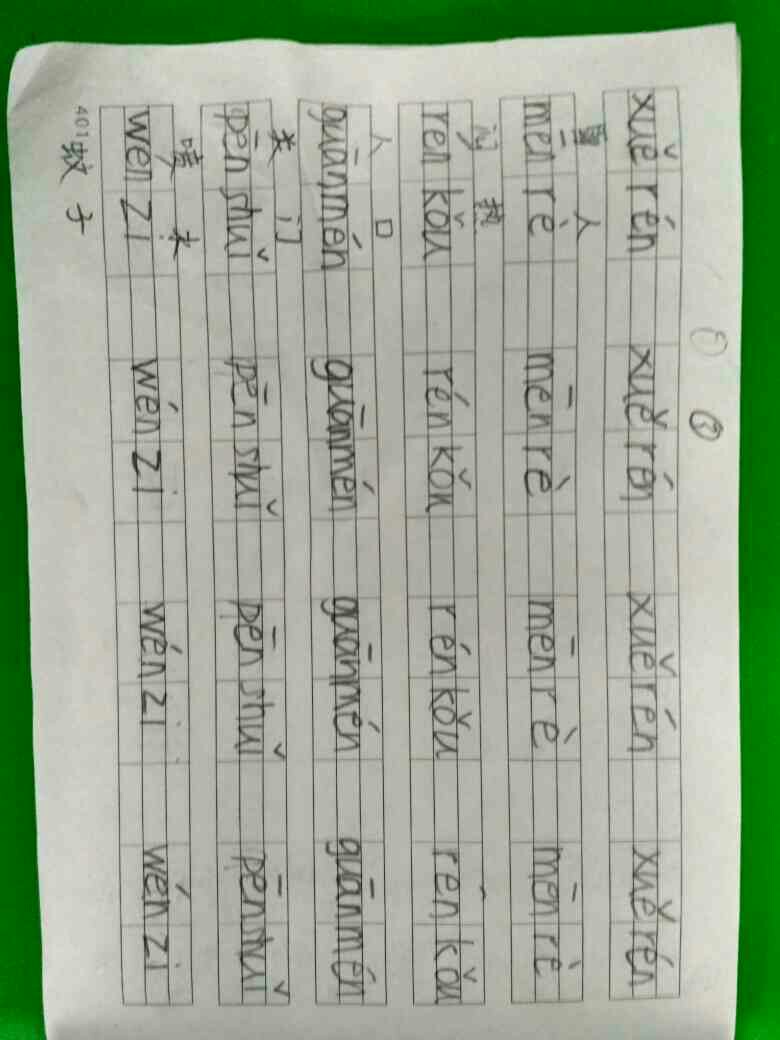 ① ③
xuě rén xuě rén xuě rén xuě rén
雪 人
mēn rè mēn rè mēn rè mēn rè
闷 热
rén kǒu rén kǒu rén kǒu rén kǒu
人 口
guānmén guānmén guānmén guānmén
关 门
pēn shuǐ pēn shuǐ pēn shuǐ pēn shuǐ
喷 水
wén zi wén zi wén zi wén zi
401 蚊 子